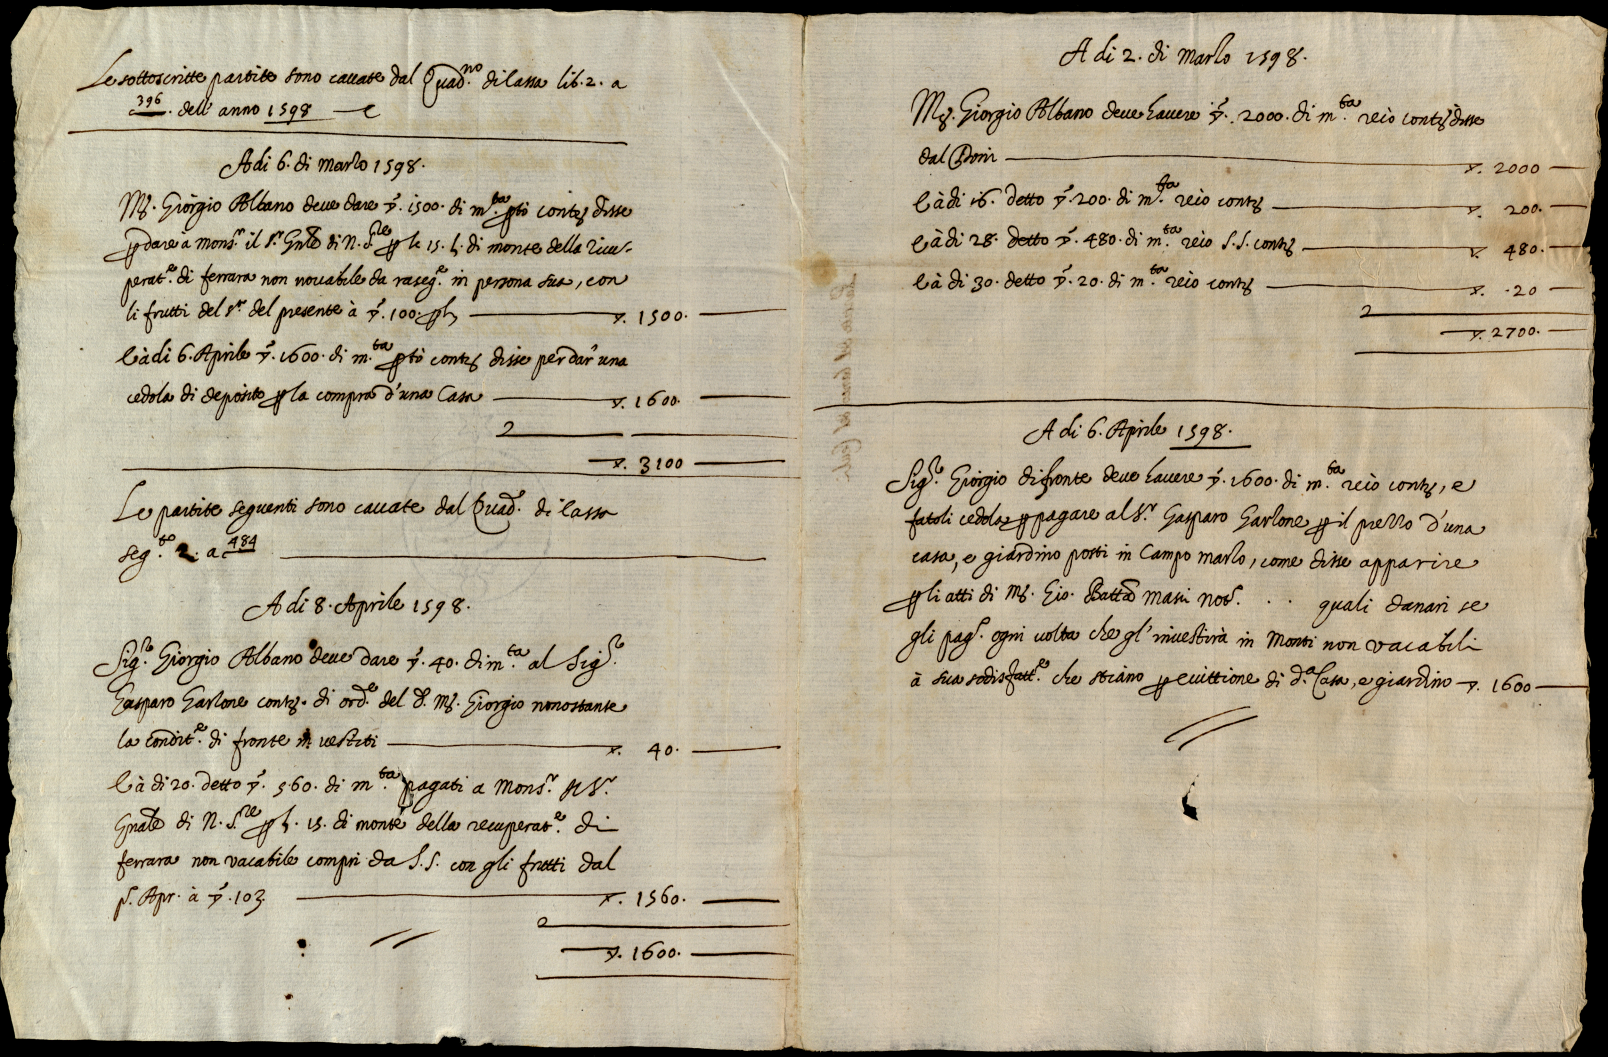 Le sottoscritte partite sono cavate dal Quad.no di cassa lib. 2. a
396. dell' anno 1598
A di 6. di Marzo 1598.
Mr. Giorgio Albano deve dare ▽. 1500. di m.ta conti disse
dare à mons.r il s.r Gnale di N. S.re p le 15. l. di monte della ricu-
perat.e di ferrara non vocabile da raseg.e in persona sua, con
li frutti del s.r del presente à ▽. 100. ▽. 1500.
E à di 6. Aprile ▽. 1600. di m.ta conti disse per dar' una
cedola di deposito p la compra d'una Casa ▽. 1600.
2
▽. 3100
Le partite seguenti sono cavate dal Quad. di Cassa
seg.to 2. a 484
A di 8. Aprile 1598.
Sig.r Giorgio Albano deve dare ▽. 40. di m.ta al Sig.r
Gasparo Garzone conti. di ord.e del d. Mr. Giorgio nonostante
la condit.e di fronte ▽. 40.
E à di 20. detto ▽. 560. di m.ta pagati a Mons.r
Gnale di N. S.re p l. 15. di monte della recuperat.e di
ferrara non vacabile compri da S.S. con gli frutti dal
p. Apr. à ▽. 103. ▽. 1560.
2
▽. 1600.
A di 2. di Marzo 1598.
Mr. Giorgio Albano deve havere ▽. 2000. di m.ta reco conti disse
dal ▽. 2000
E à di 16. detto ▽. 200. di m.ta reco conti ▽. 200.
E à di 28. detto ▽. 480. di m.ta reco S.S. conti ▽. 480.
E à di 30. detto ▽. 20. di m.ta reco conti ▽. .20
2
▽. 2700.
A di 6. Aprile 1598.
Sig.r Giorgio di fronte deve havere ▽. 1600. di m.ta reco conti, e
fatoli cedola p pagare al s.r Gasparo Garzone p il prezzo d'una
casa, e giardino posti in Campo marzo, come disse apparire
p li atti di Mr. Gio. Batta Massi Not. . . quali danari se
gli pag.e ogni volta che gl' investirà in Monti non vacabili
à sua sodisfatt.e che stiano p evittione di d.a Casa, e giardino ▽. 1600